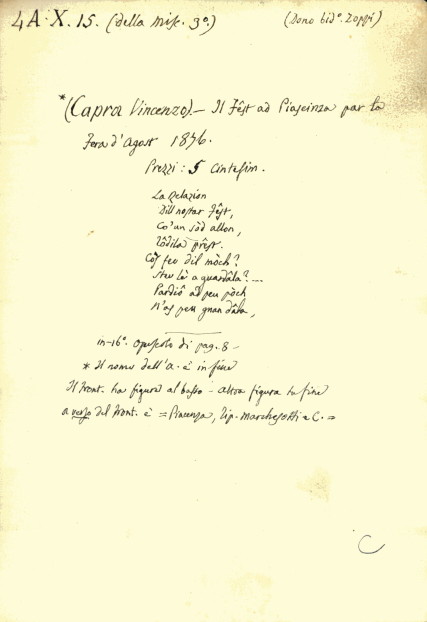 4A.X.15. (della Misc. 3º.) (Dono bibº. Zoppi)
*(Capra Vincenzo). – Il Fêst ad Piaseinza par la
Fera d'Agost 1876.
Prezzi: 5 Cintesim.
La Relazion
Dill nostar Fêst,
Co' un sôd allon,
Tôdila prêst.
Côs feu dil môch?
Steu lè a guardâla?...
Pardiô ad peu pôch
N'os peu gnan dâla,
in-16º. opuscolo di pag. 8 –
* Il nome dell'A. è in fine
Il front. ha figura al basso – altra figura in fine
a verso del front. è = Piacenza, Tip. Marchesotti e C. =
C